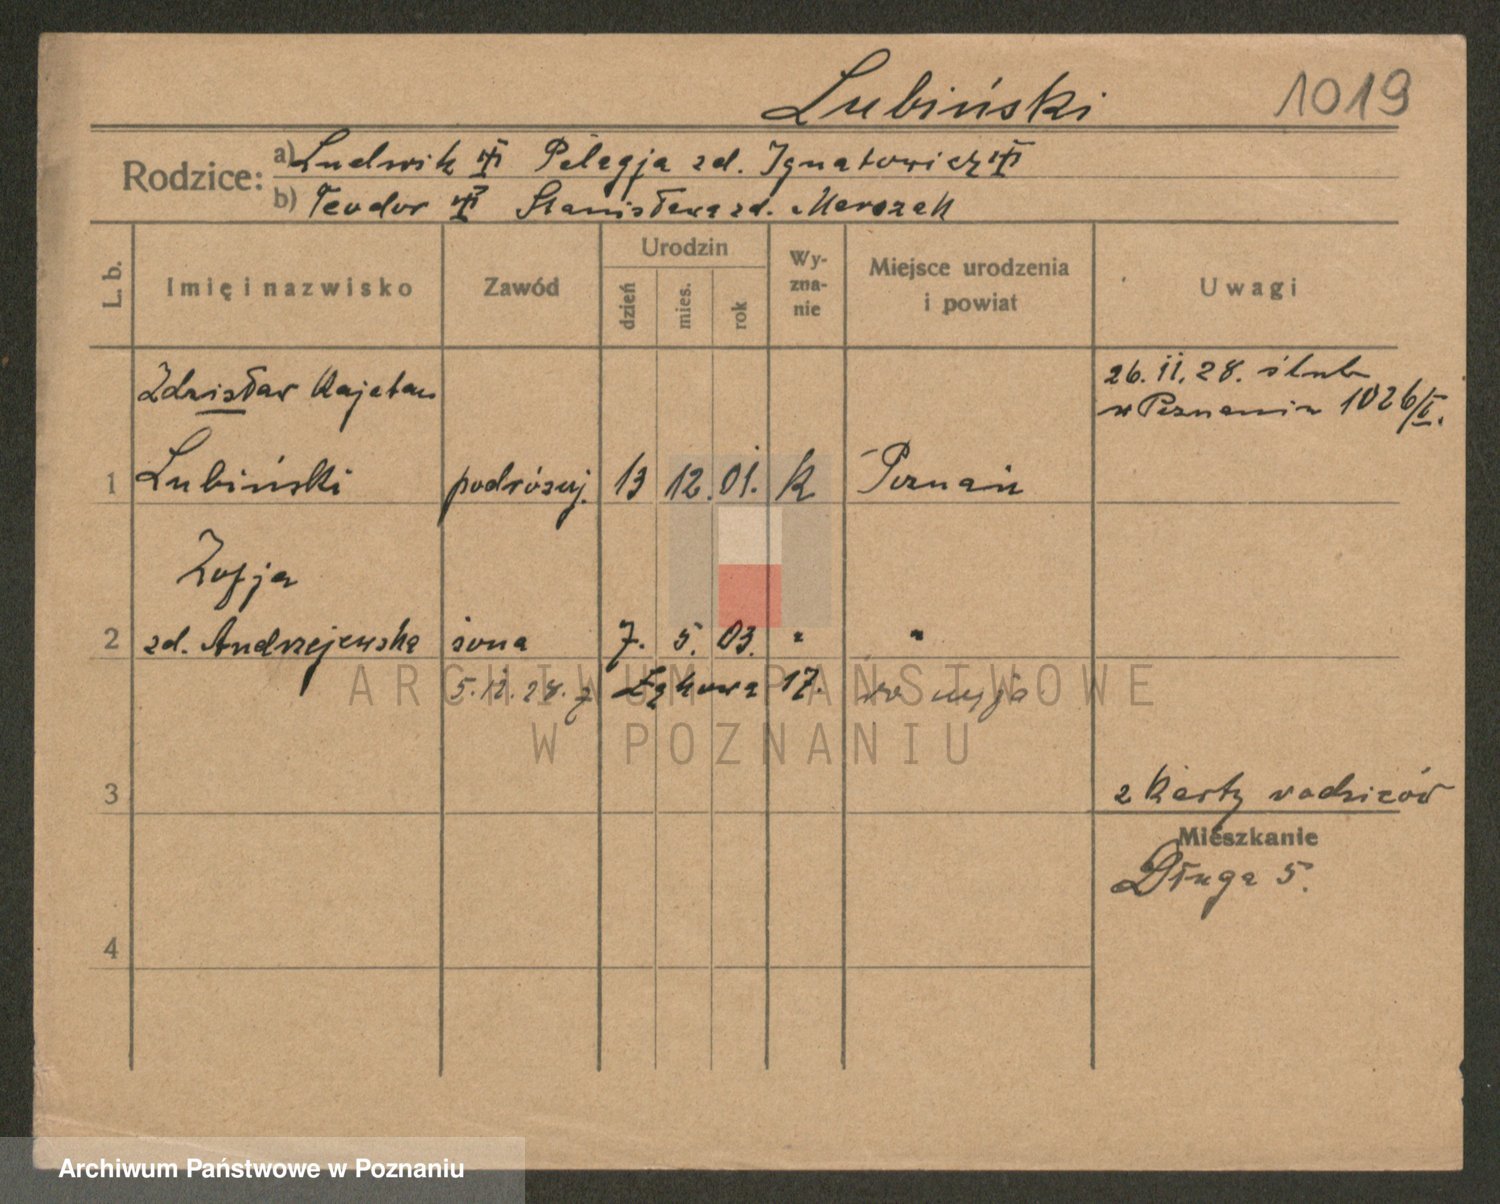 Lubiński 1019
Rodzice: a) Ludwik Pelagja zd. Ignatowicz
b) Teodor Stanisława zd. Marszał
L. b. Imię i nazwisko Zawód Urodzin Wy-
zna-
nie Miejsce urodzenia
i powiat Uwagi
dzień mies. rok
Zdzisław Kajetan 26. 11. 28. ślub
w Poznaniu 1026/II.
1 Lubiński podróżuj. 13 12. 01. k Poznań
Zofja
2 zd. Andrzejewska żona 7. 5. 03. " "
5. 12. 28. z Łąkowa 17.
3 z karty rodziców
Mieszkanie
Długa 5.
4
ARCHIWUM PAŃSTWOWE
W POZNANIU
Archiwum Państwowe w Poznaniu